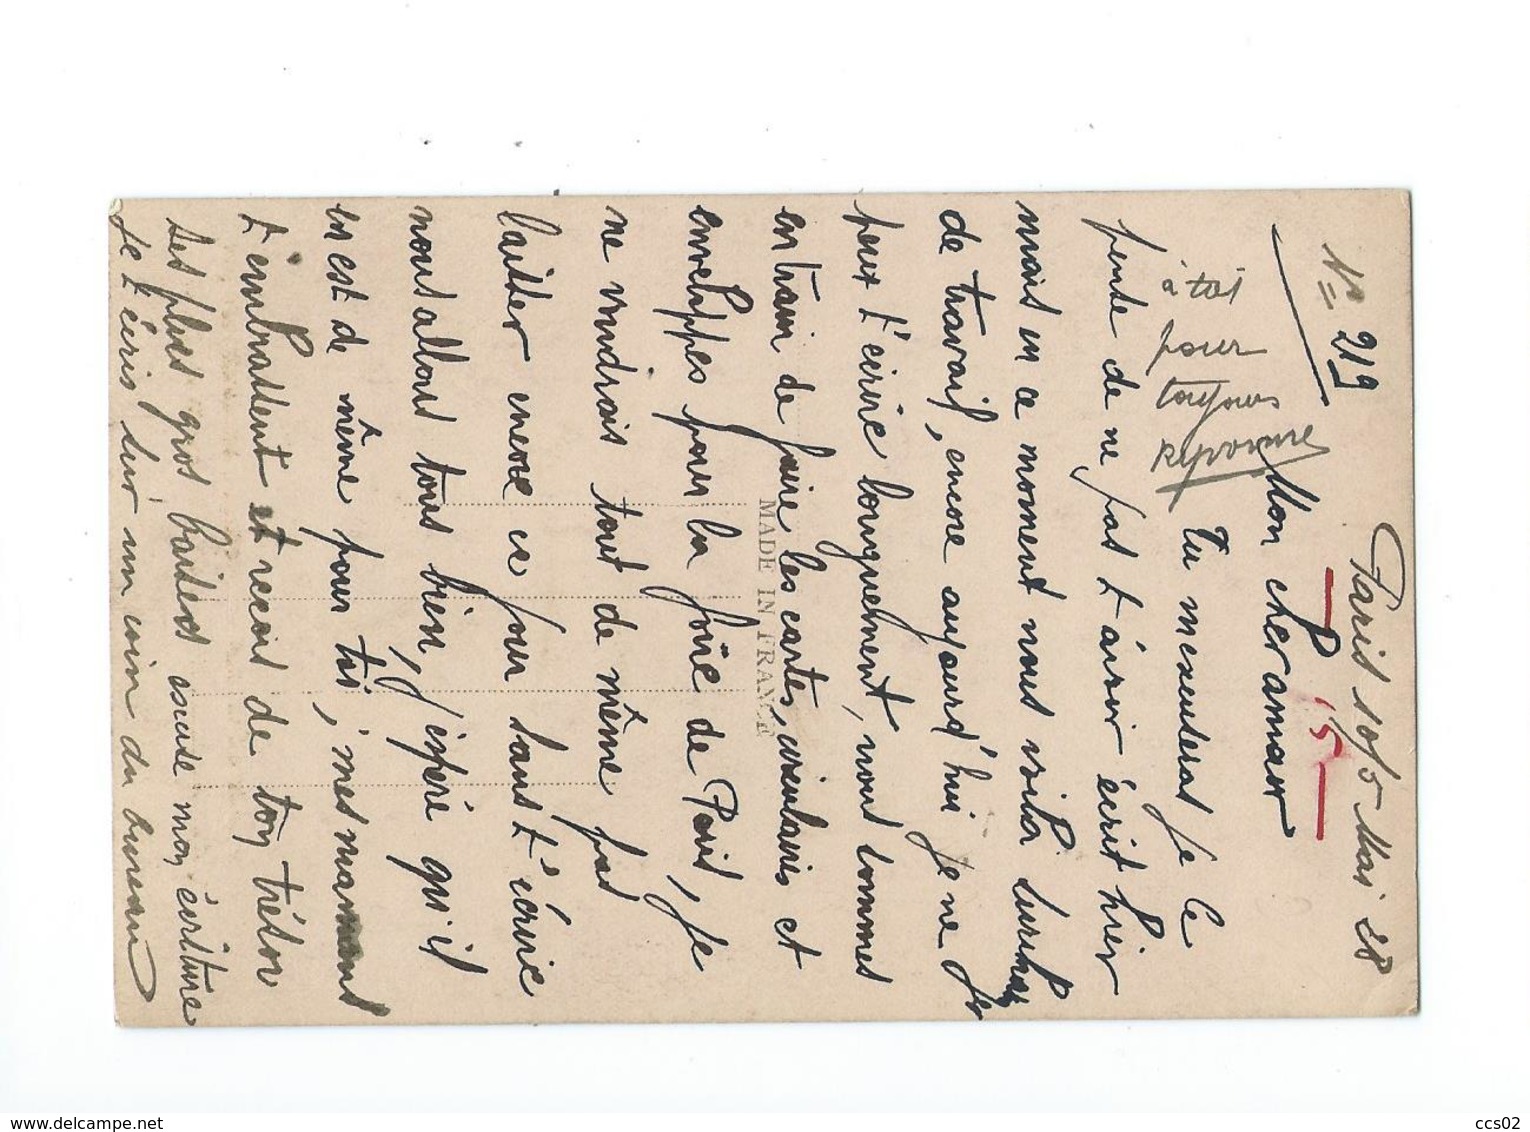 Paris 10/5 Mai 28
N= 219
P. 15
à toi
pour
toujours
Mon cher amour
Tu m'excuseras je le
pense de ne pas t'avoir écrit hier
mais en ce moment nous voilà
de travail, encore aujourd'hui je ne
peux t'écrire longuement, nous sommes
en train de faire les cartes, circulaires et
enveloppes pour la foire de Paris, je
ne voudrais tout de même pas
laisser encore ce jour sans t'écrire
nous allons tous bien, j'espère qu'il
en est de même pour toi, mes mamans
t'embrassent et reçois de ton trésor
ses plus gros baisers excuse mon écriture
je t'écris sur un coin du bureau
MADE IN FRANCE
ccs02